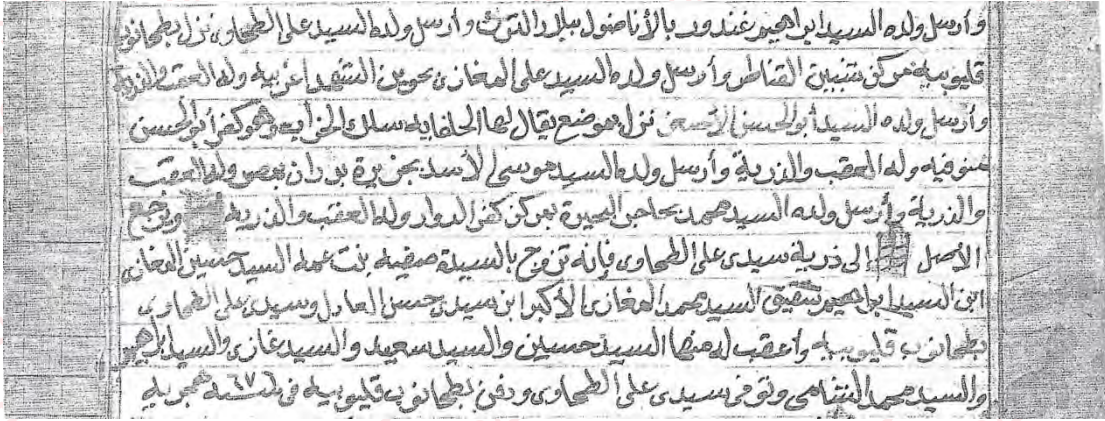 وأرسل ولده السيد ابراهيم غندور بالأناضول ببلاد الترك وأرسل ولده السيد على الطحاوى نزل بطحانوب
قليوبيه مركز شبين القناطر وأرسل ولده السيد على المغازى بحوين السنقدا غربيه وله العقب والذرية
وأرسل ولده السيد أبو الحسن الأصغر نزل بموضع يقال لها الحلفايه سلك الخراب وهو كفر أبو الحسن
منوفيه وله العقب والذرية وأرسل ولده السيد موسى الأسد بجزيرة بدران بمصر وله العقب
والذرية وأرسل ولده السيد محمد بحاجر البحيرة بمركز كفر الدوار وله العقب والذريه ونرجع
الأصل إلى ذرية سيدى على الطحاوى فإنه تزوج بالسيدة صفيه بنت عمه السيد حسين المغازى
ابن السيد ابراهيم شقيق السيد محمد المغازى الأكبر ابن سيدى حسن العادل وسيدى على الطحاوى
بطحانوب قليوبيه وأعقب له منها السيد حسين والسيد سعيد والسيد غازى والسيد ابراهيم
والسيد محمد الشامى وتوفى سيدى على الطحاوى ودفن بطحانوب قليوبيه فى سنة هجريه